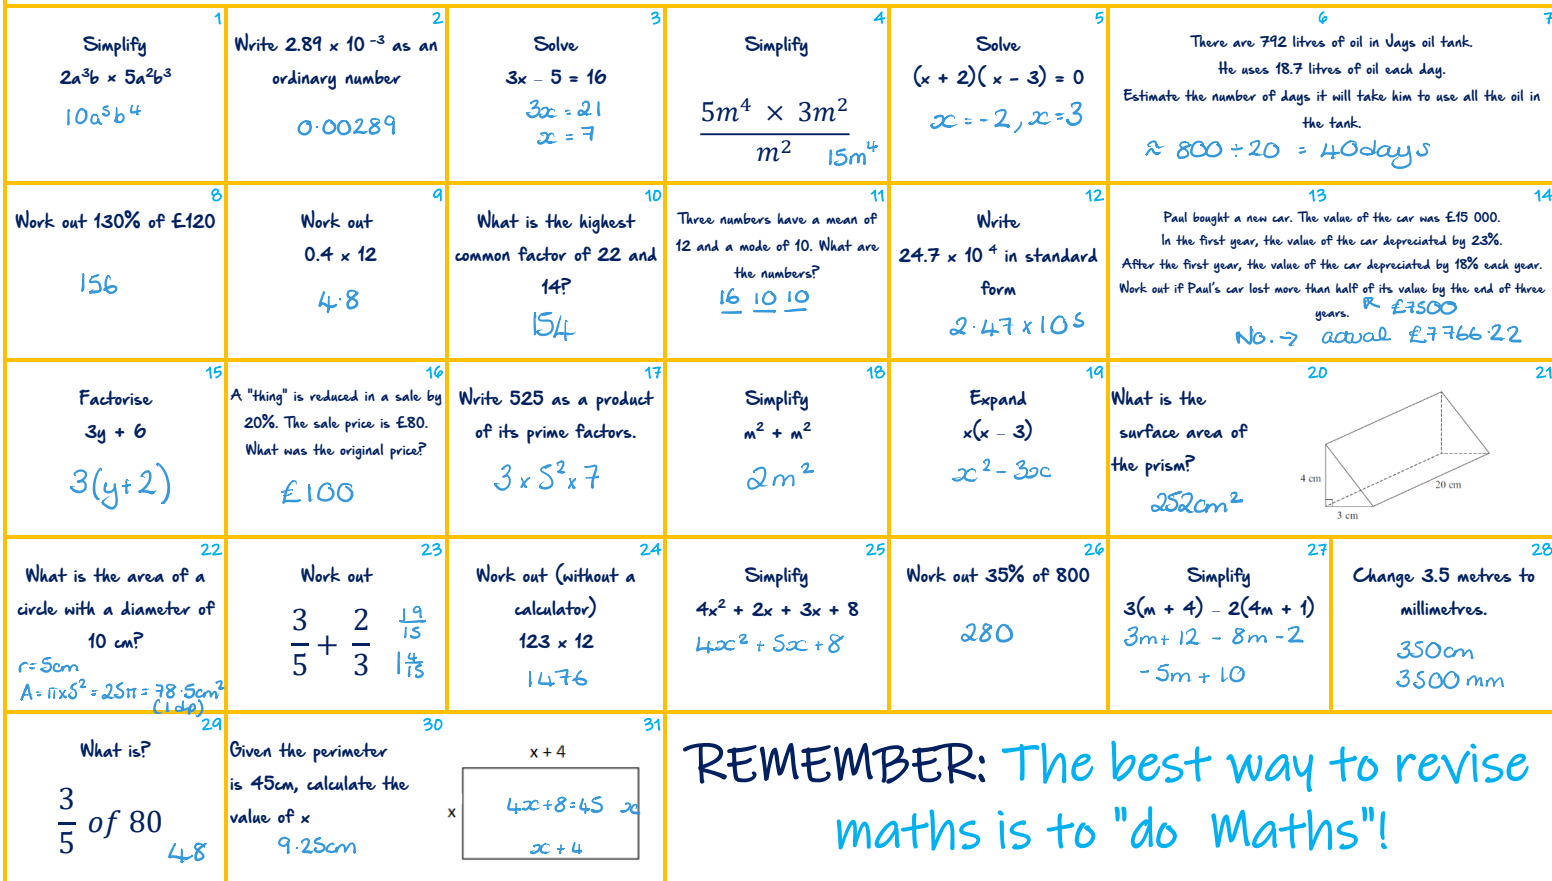 1
Simplify
2a³b × 5a²b³
10a⁵b⁴
2
Write 2.89 x 10 ⁻³ as an
ordinary number
0·00289
3
Solve
3x – 5 = 16
3x = 21
x = 7
4
Simplify
5m⁴ × 3m²
m²
15m⁴
5
Solve
(x + 2)( x – 3) = 0
x = -2, x = 3
6
7
There are 792 litres of oil in Jays oil tank.
He uses 18.7 litres of oil each day.
Estimate the number of days it will take him to use all the oil in
the tank.
≈ 800 ÷ 20 = 40days
8
Work out 130% of £120
156
9
Work out
0.4 x 12
4·8
10
What is the highest
common factor of 22 and
14?
154
11
Three numbers have a mean of
12 and a mode of 10. What are
the numbers?
16 10 10
12
Write
24.7 x 10 ⁴ in standard
form
2·47 x 10⁵
13
14
Paul bought a new car. The value of the car was £15 000.
In the first year, the value of the car depreciated by 23%.
After the first year, the value of the car depreciated by 18% each year.
Work out if Paul's car lost more than half of its value by the end of three
years.
£7500
No. → actual £7766·22
15
Factorise
3y + 6
3(y+2)
16
A "thing" is reduced in a sale by
20%. The sale price is £80.
What was the original price?
£100
17
Write 525 as a product
of its prime factors.
3 x 5² x 7
18
Simplify
m² + m²
2m²
19
Expand
x(x – 3)
x² - 3x
20
21
What is the
surface area of
the prism?
252cm²
4 cm
3 cm
20 cm
22
What is the area of a
circle with a diameter of
10 cm?
r=5cm
A = πx5² = 25π = 78·5cm²
(1dp)
23
Work out
3/5 + 2/3
19/15
1 4/15
24
Work out (without a
calculator)
123 x 12
1476
25
Simplify
4x² + 2x + 3x + 8
4x² + 5x + 8
26
Work out 35% of 800
280
27
Simplify
3(m + 4) – 2(4m + 1)
3m + 12 - 8m - 2
-5m + 10
28
Change 3.5 metres to
millimetres.
350cm
3500mm
29
What is?
3/5 of 80
48
30
31
Given the perimeter
is 45cm, calculate the
value of x
9·25cm
x + 4
x
4x+8=45 x
x + 4
REMEMBER: The best way to revise
maths is to "do Maths"!